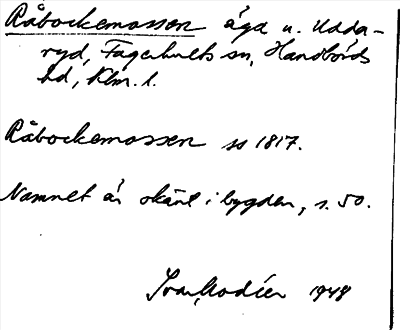 Råbockemossen äga u. Udda-
ryd, Fagerhults sn, Handbörds
hd, Klm. l.
Råbockemossen ss 1817.
Namnet är känt i bygden, s. 50.
Ivar Modéer 1948